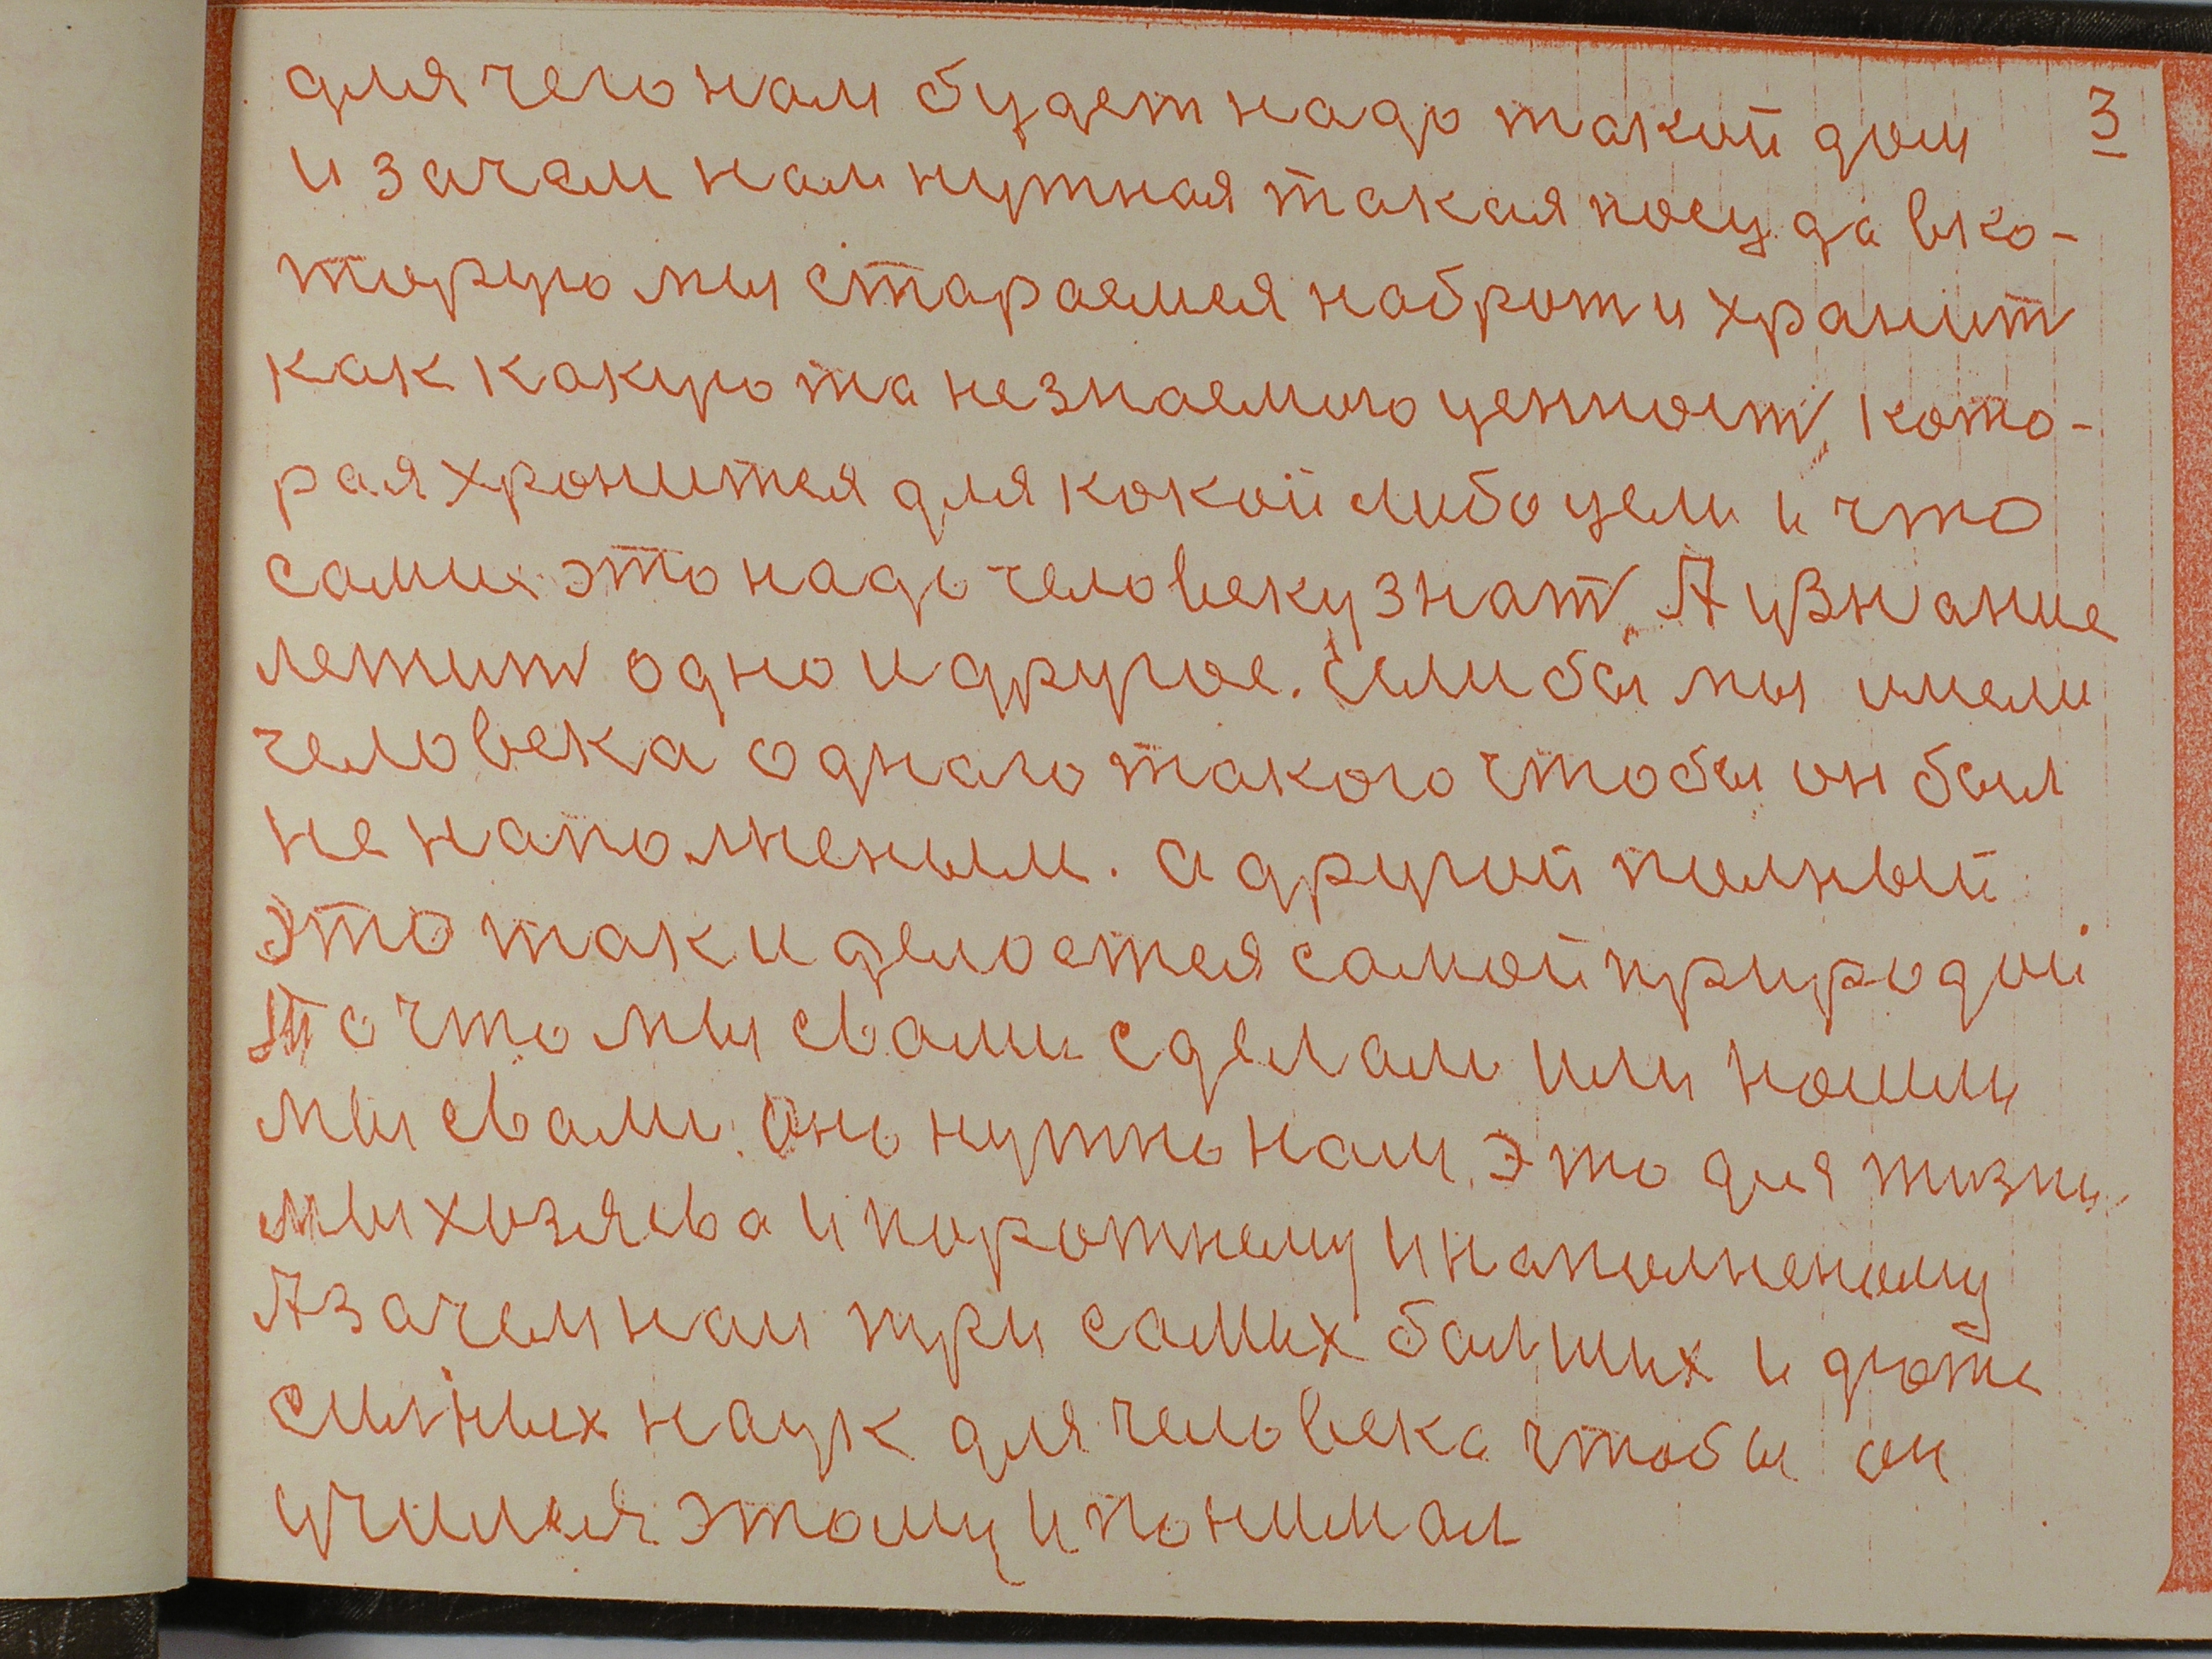 для чего нам будет надо такой дом
3
и зачем нам нужная такая посуда в ко-
торую мы стараемся наброт и хранит
как какую та незнаемого ценност, кото-
рая хронится для кокой либо цели и что
самих это надо человеку знат. А из знание
лежит одно и другое. Если бы мы имели
человека однаго такого чтобы он был
не наполненым. а другой полный
это так и делоется самой природой
То что мы с вами сделали или нашли
мы с вами. Оно нужно нам. Это для жизни
мы хозяева и порожнему и наполненому
А зачем нам три самих балших и дюже
силных наук для человека чтобы он
учился этому и понимал